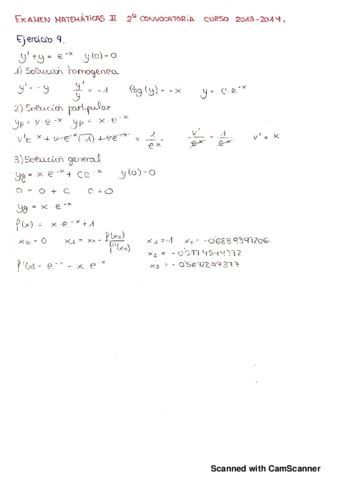 EXAMEN MATEMÁTICAS II 2º CONVOCATORIA CURSO 2013-2014.
Ejercicio 9.
y' + y = e^-x y(0)=0
1) Solución homogenea
y' = -y y'/y = -1 log(y) = -x y = C·e^-x
2) Solución partipular
yp = v·e^-x yp = x·e^-x
v'e^-x + v·e^-x(-1) + ve^-x = 1/e^x v'/e^x = 1/e^x v' = x
3) Solución general
yg = x e^-x + Ce^-x y(0)=0
0 = 0 + C C=0
yg = x·e^-x
f(x) = x·e^-x + 1
x0 = 0 x1 = x0 - f(x0)/f'(x0) x1 = -1
x2 =
x3 =
f'(x) = e^-x - x e^-x
Scanned with CamScanner